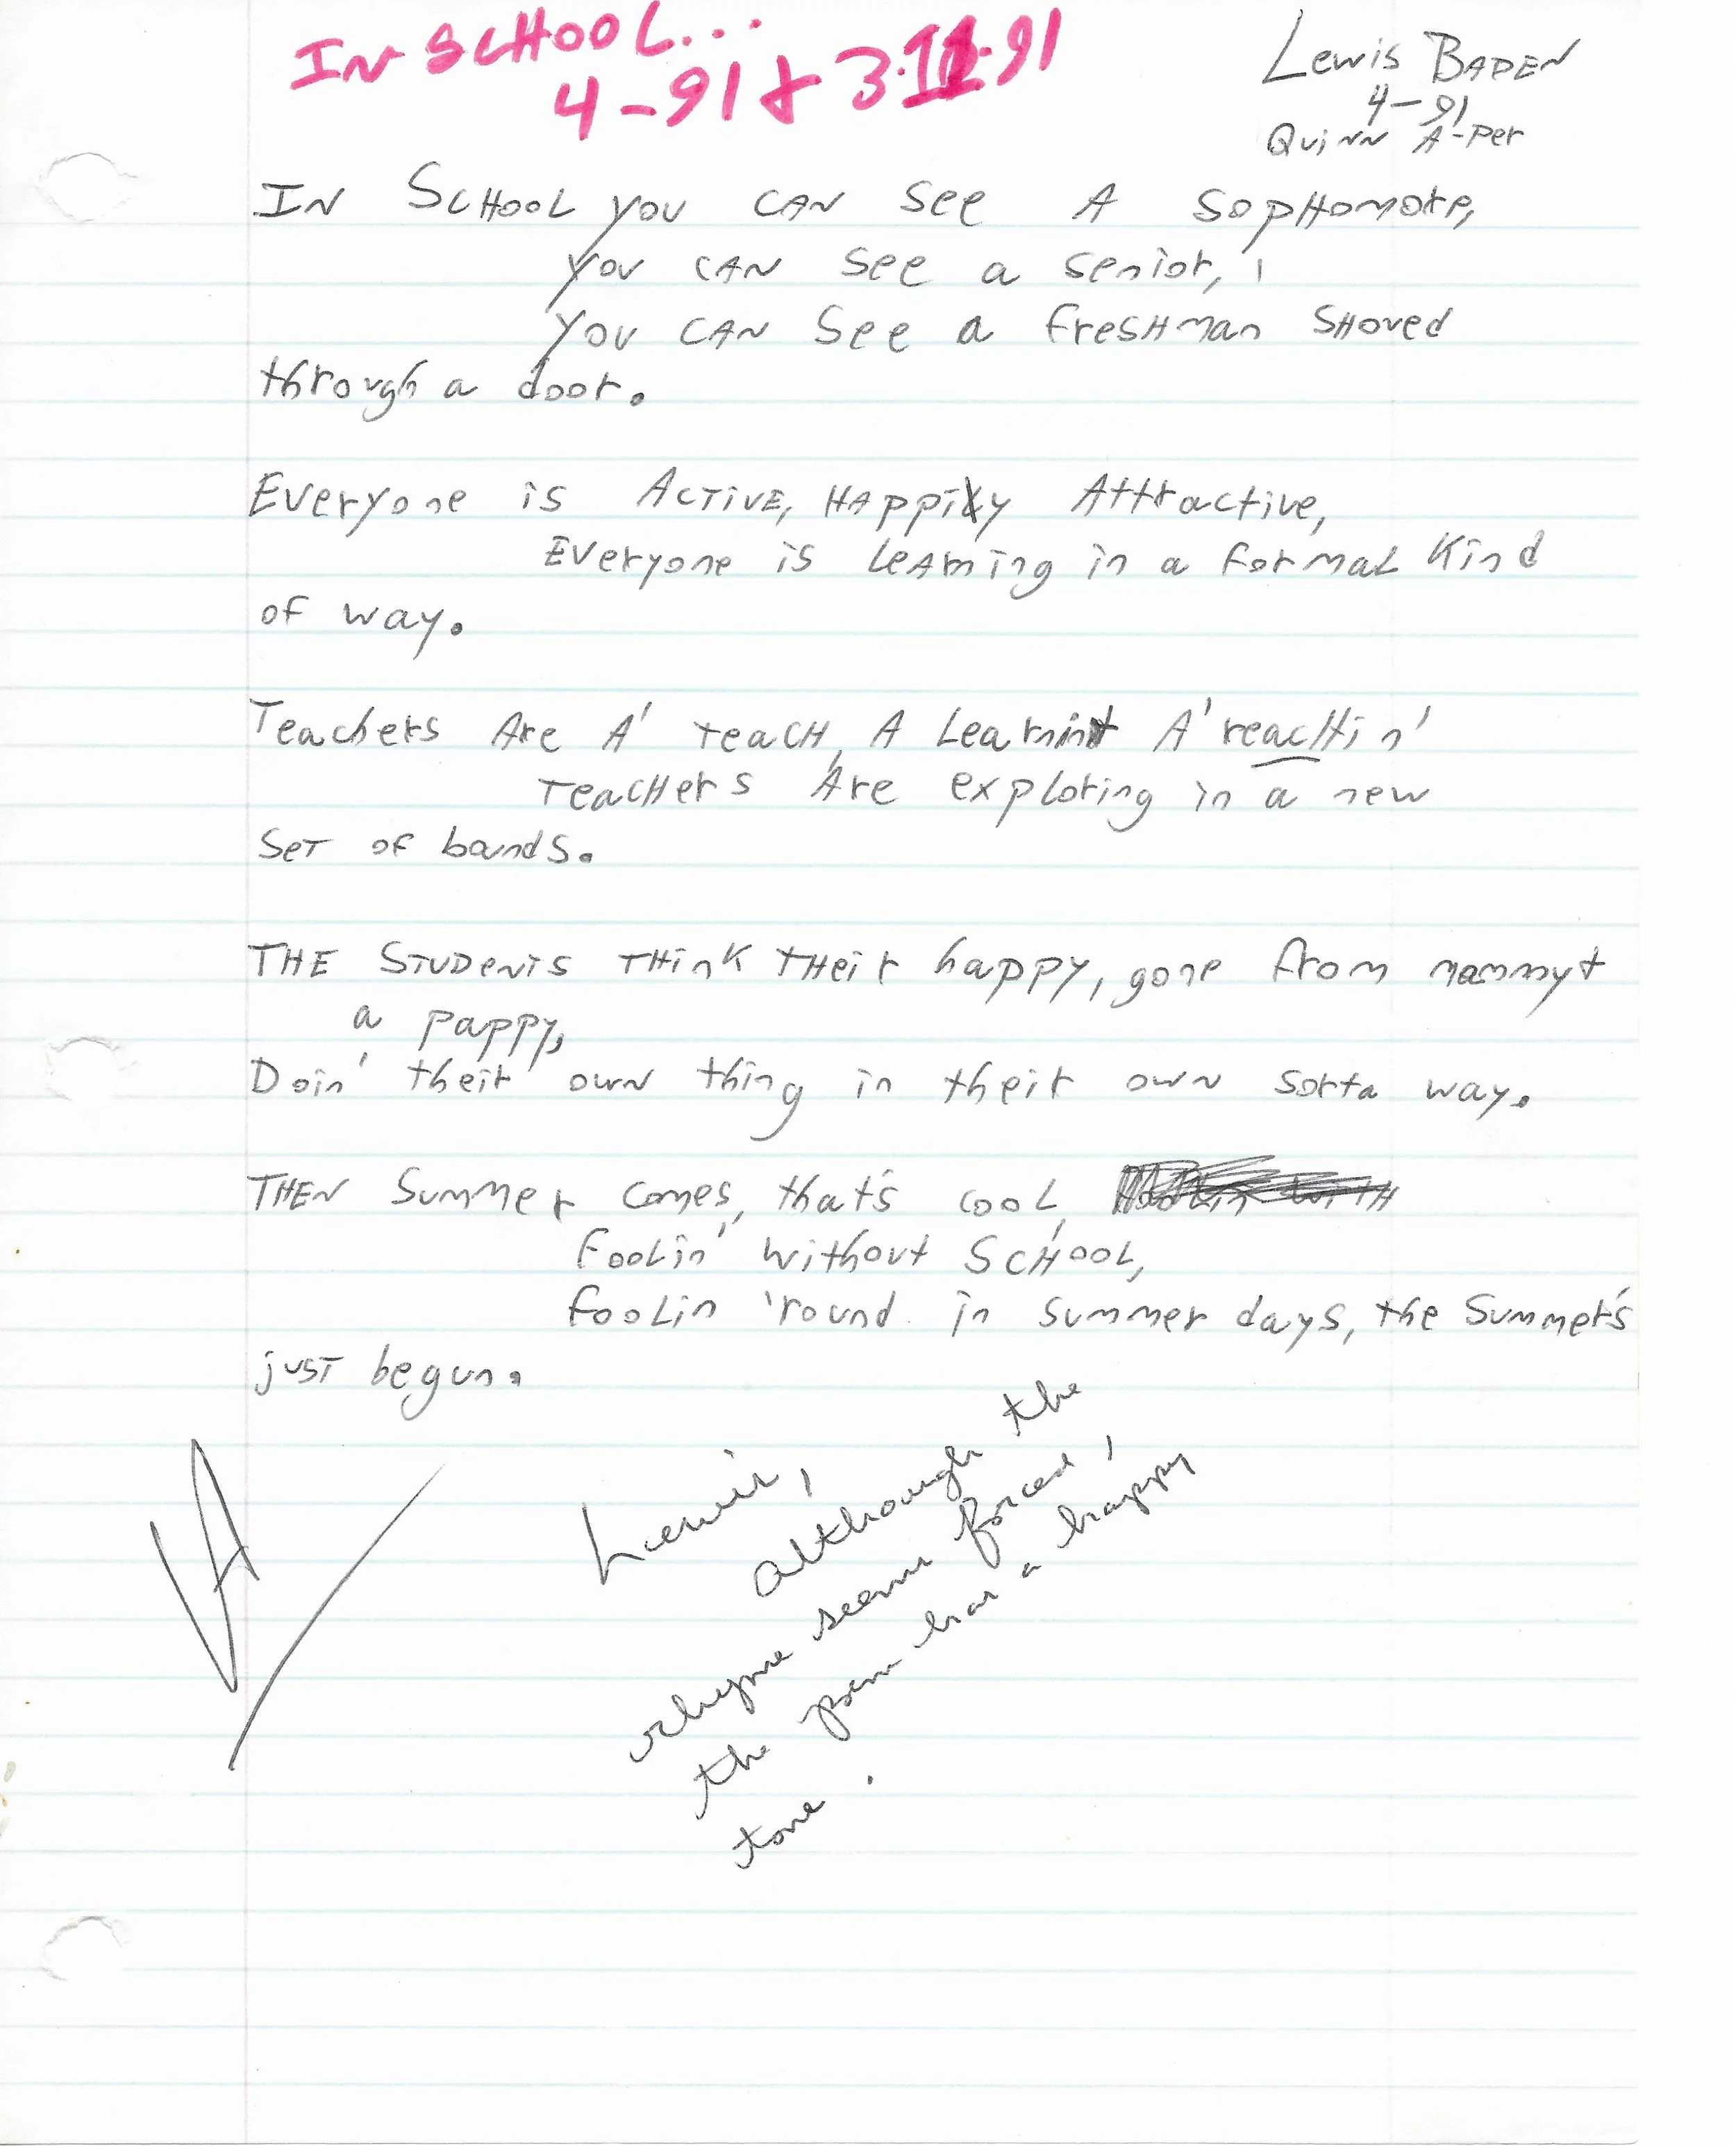 IN SCHOOL...
4-91 & 3.11.91
Lewis BADEN
4-91
Quinn A-Per
IN SCHOOL you CAN See A SopHomore,
you CAN See a senior,
you CAN See a freSHman SHoved
through a door.
Everyone is ACTiVE, HAppily Attractive,
Everyone is LeArning in a formaL Kind
of way.
Teachers Are A' teaCH, A Learnin A' reacHin'
TeacHers Are expLoring in a new
SeT of bounds.
THE STUDenTS THinK THeir happy, gone from mammy &
a pappy,
Doin' their own thing in their own sorta way.
THEN Summer comes, that's cooL,
fooLin' without SCHOOL,
fooLin 'round in summer days, the Summer's
jusT begun.
A
Lewis,
although the
rhyme seems forced,
the poem has a happy
tone.